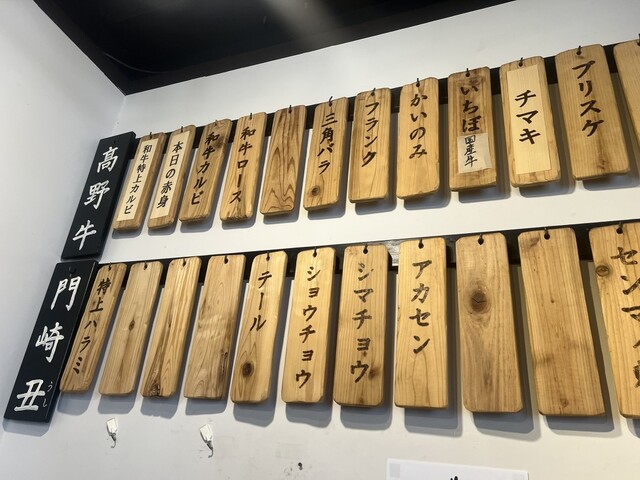 高野牛
和牛特上カルビ
本日の赤身
和牛カルビ
和牛ロース
三角バラ
フランク
かいのみ
いちぼ
国産牛
チマキ
ブリスケ
門崎丑
うし
特上ハラミ
テール
ショウチョウ
シマチョウ
アカセン
センマイ